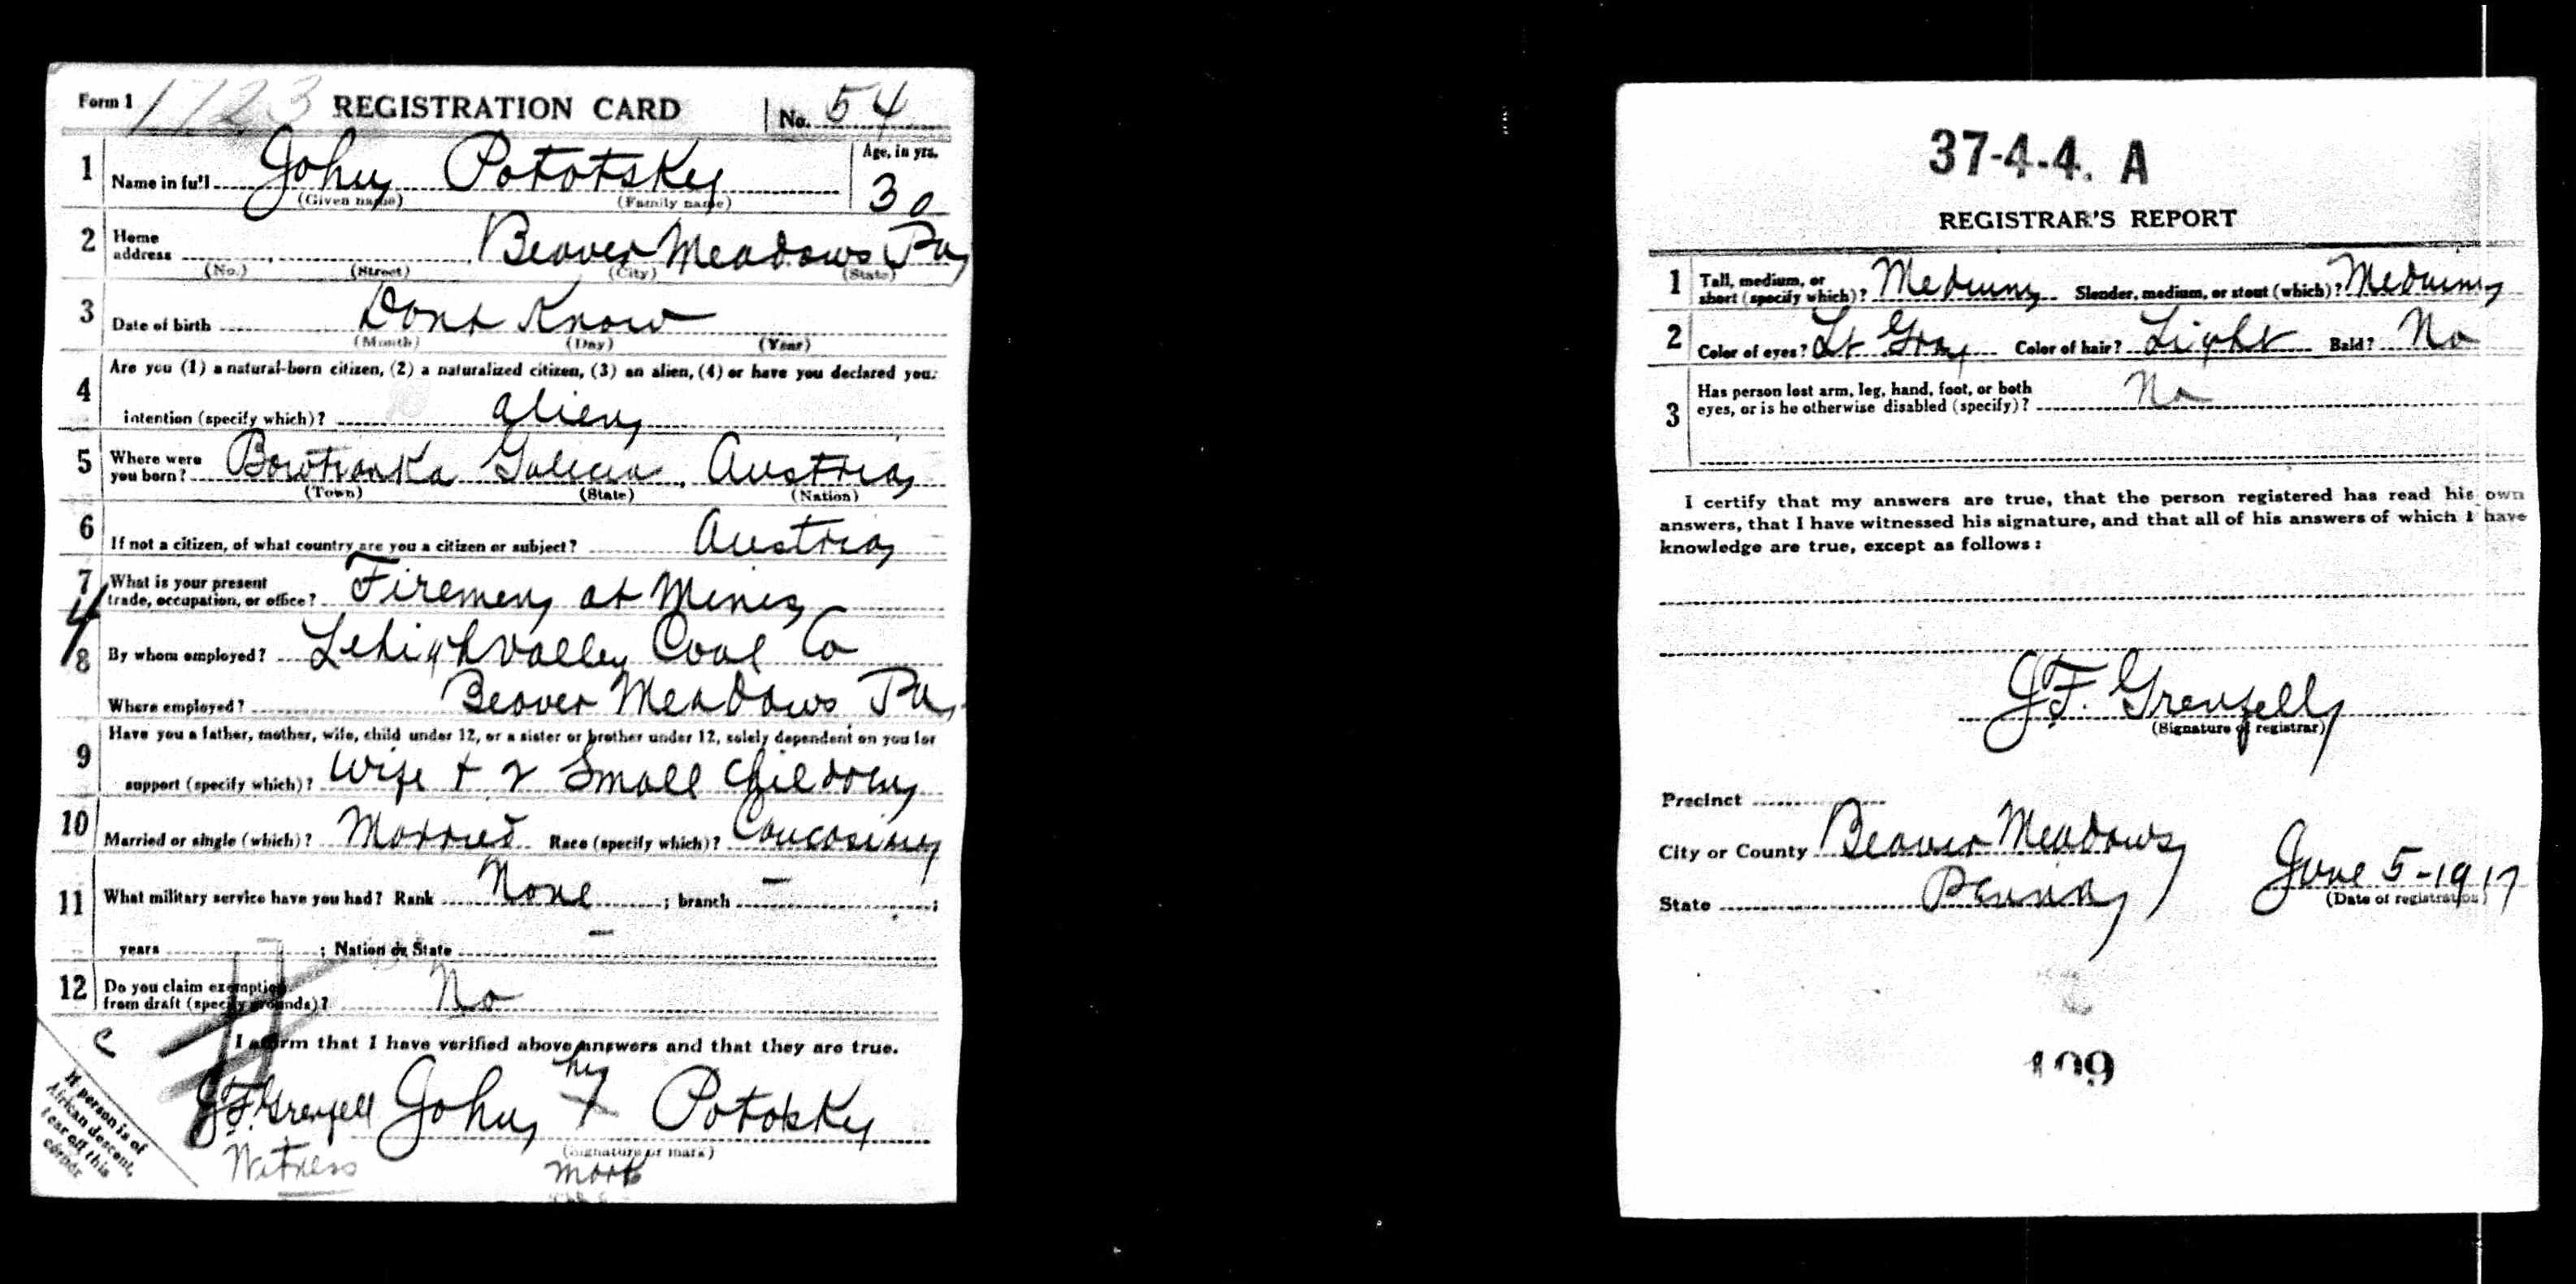 Form 1 1723 REGISTRATION CARD No. 54
1 Name in full John Pototsky Age, in yrs. 30
(Given name) (Family name)
2 Home address Beaver Meadows Pa
(No.) (Street) (City) (State)
3 Date of birth Dont Know
(Month) (Day) (Year)
4 Are you (1) a natural-born citizen, (2) a naturalized citizen, (3) an alien, (4) or have you declared your
intention (specify which)? alien
5 Where were you born? Galicia Austria
(Town) (State) (Nation)
6 If not a citizen, of what country are you a citizen or subject? Austria
7 What is your present trade, occupation, or office? Firemen at Mines
4
8 By whom employed? Lehigh Valley Coal Co
Where employed? Beaver Meadows Pa
9 Have you a father, mother, wife, child under 12, or a sister or brother under 12, solely dependent on you for
support (specify which)? Wife + 2 Small Children
10 Married or single (which)? Married Race (specify which)? Caucasian
11 What military service have you had? Rank None ; branch — ;
years ; Nation or State —
12 Do you claim exemption from draft (specify grounds)? No
I affirm that I have verified above answers and that they are true.
his
J.F. Grenfell John X Pototsky
(Signature or mark)
Witness mark
If person is of
African descent,
tear off this
corner
37-4-4. A
REGISTRAR'S REPORT
1 Tall, medium, or short (specify which)? Medium Slender, medium, or stout (which)? Medium
2 Color of eyes? Lt Gray Color of hair? Light Bald? No
3 Has person lost arm, leg, hand, foot, or both eyes, or is he otherwise disabled (specify)? No
I certify that my answers are true, that the person registered has read his own
answers, that I have witnessed his signature, and that all of his answers of which I have
knowledge are true, except as follows:
J.F. Grenfell
(Signature of registrar)
Precinct
City or County Beaver Meadows
State Penna June 5-1917
(Date of registration)
109